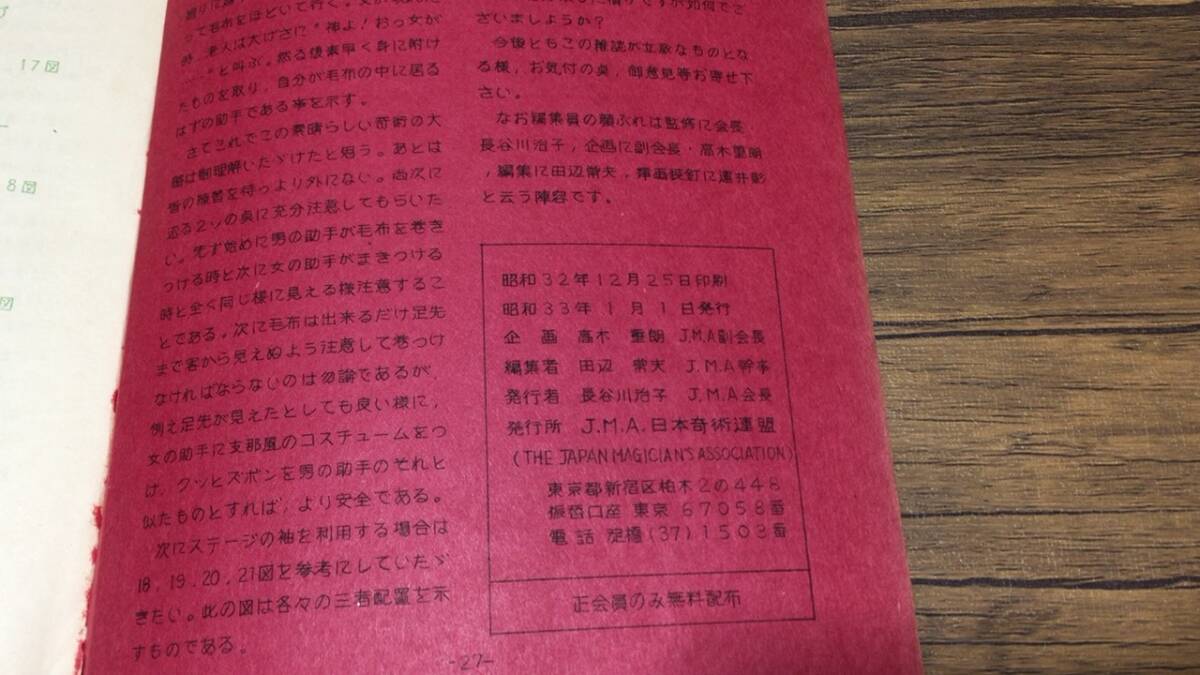 って毛布をほどいて行く。
時、老人は大げさに〝神よ！おっ女が
……〟と叫ぶ。然る後素早く身に附け
たものを取り、自分が毛布の中に居る
はずの助手である事を示す。
さてこれでこの素晴らしい奇術の大
略は御理解いたゞけたと思う。あとは
皆の練習を待つより外にない。尚次に
述る2ツの点に充分注意してもらいた
い。先ず始めに男の助手が毛布を巻き
つける時と次に女の助手がまきつける
時と全く同じ様に見える様注意するこ
とである。次に毛布は出来るだけ足先
まで客から見えぬよう注意して巻つけ
なければならないのは勿論であるが、
例え足先が見えたとしても良い様に、
女の助手に支那風のコスチュームをつ
け、クツとズボンを男の助手のそれと
似たものとすれば、より安全である。
次にステージの袖を利用する場合は
18、19、20、21図を参考にしていたゞ
きたい。此の図は各々の三者配置を示
すものである。
ざいましようか？
今後ともこの雑誌が立派なものとな
る様、お気付の点、御意見等お寄せ下
さい。
なお編集員の顔ぶれは監修に会長
長谷川治子，企画に副会長・高木重朗
，編集に田辺常夫，
と云う陣容です。
昭和32年12月25日印刷
昭和33年1月1日発行
企画 高木 重朗 J.M.A副会長
編集者 田辺 常夫 J.M.A幹事
発行者 長谷川治子 J.M.A会長
発行所 J.M.A.日本奇術連盟
(THE JAPAN MAGICIAN'S ASSOCIATION)
東京都新宿区柏木2の448
振替口座 東京 67058番
電話 淀橋(37)1503番
正会員のみ無料配布
-27-
17図
8図
図